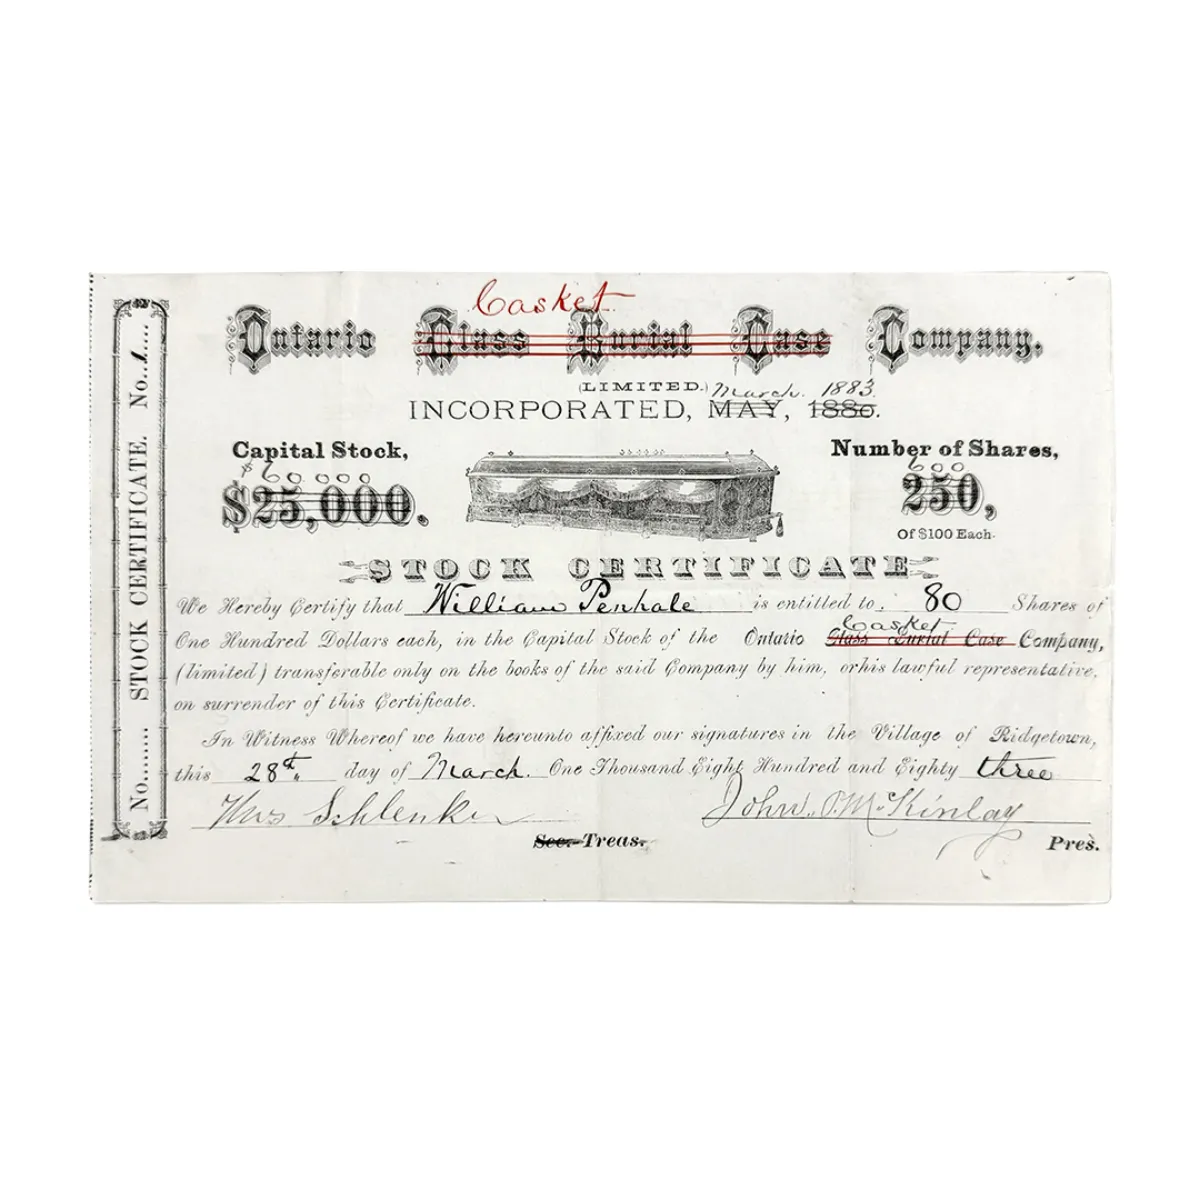 Casket
Ontario Glass Burial Case Company.
(LIMITED.) March. 1883.
INCORPORATED, MAY, 1880.
Capital Stock,
$60000
$25,000.
Number of Shares,
600
250,
Of $100 Each.
STOCK CERTIFICATE
We Hereby Certify that William Penhale is entitled to 80 Shares of
Casket
One Hundred Dollars each, in the Capital Stock of the Ontario Glass Burial Case Company,
(limited) transferable only on the books of the said Company by him, or his lawful representative,
on surrender of this Certificate.
In Witness Whereof we have hereunto affixed our signatures in the Village of Ridgetown,
this 28th day of March. One Thousand Eight Hundred and Eighty three
Schlenker John McKinlay
Sec.-Treas. Pres.
No....... STOCK CERTIFICATE. No..1....